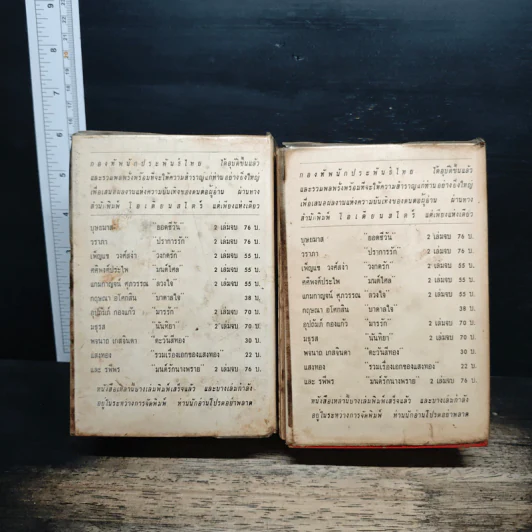 กองทัพนักประพันธ์ไทย ได้อุบัติขึ้นแล้ว
และรวมพลพรั่งพร้อมที่จะให้ความสำราญแก่ท่านอย่างยิ่งใหญ่
เพื่อเสนอผลงานแห่งความบันเทิงของตนต่อผู้อ่าน ผ่านทาง
สำนักพิมพ์ โอเดียนสโตร์ แต่เพียงแห่งเดียว
บุษยมาส "ยอดชีวัน" 2 เล่มจบ 76 บ.
วราภา "ปราการรัก" 2 เล่มจบ 76 บ.
เพ็ญแข วงศ์สง่า "วงกตรัก" 2 เล่มจบ 55 บ.
ศศิพงศ์ประไพ "มนต์ไศล" 2 เล่มจบ 55 บ.
แกมกาญจน์ ศุภวรรณ "ลวงใจ" 2 เล่มจบ 55 บ.
กฤษณา อโศกสิน "บาดาลใจ" 38 บ.
อุปถัมภ์ กองแก้ว "มารรัก" 2 เล่มจบ 70 บ.
มธุรส "นันทิยา" 2 เล่มจบ 70 บ.
พจนาถ เกสจินดา "ตะวันสีทอง" 30 บ.
แสงทอง "รวมเรื่องเอกของแสงทอง" 22 บ.
และ รพีพร "มนต์รักนางพราย" 2 เล่มจบ 76 บ.
หนังสือเหล่านี้บางเล่มพิมพ์เสร็จแล้ว และบางเล่มกำลัง
อยู่ในระหว่างการจัดพิมพ์ ท่านนักอ่านโปรดอย่าพลาด
กองทัพนักประพันธ์ไทย ได้อุบัติขึ้นแล้ว
และรวมพลพรั่งพร้อมที่จะให้ความสำราญแก่ท่านอย่างยิ่งใหญ่
เพื่อเสนอผลงานแห่งความบันเทิงของตนต่อผู้อ่าน ผ่านทาง
สำนักพิมพ์ โอเดียนสโตร์ แต่เพียงแห่งเดียว
บุษยมาส "ยอดชีวัน" 2 เล่มจบ 76 บ.
วราภา "ปราการรัก" 2 เล่มจบ 76 บ.
เพ็ญแข วงศ์สง่า "วงกตรัก" 2 เล่มจบ 55 บ.
ศศิพงศ์ประไพ "มนต์ไศล" 2 เล่มจบ 55 บ.
แกมกาญจน์ ศุภวรรณ "ลวงใจ" 2 เล่มจบ 55 บ.
กฤษณา อโศกสิน "บาดาลใจ" 38 บ.
อุปถัมภ์ กองแก้ว "มารรัก" 2 เล่มจบ 70 บ.
มธุรส "นันทิยา" 2 เล่มจบ 70 บ.
พจนาถ เกสจินดา "ตะวันสีทอง" 30 บ.
แสงทอง "รวมเรื่องเอกของแสงทอง" 22 บ.
และ รพีพร "มนต์รักนางพราย" 2 เล่มจบ 76 บ.
หนังสือเหล่านี้บางเล่มพิมพ์เสร็จแล้ว และบางเล่มกำลัง
อยู่ในระหว่างการจัดพิมพ์ ท่านนักอ่านโปรดอย่าพลาด